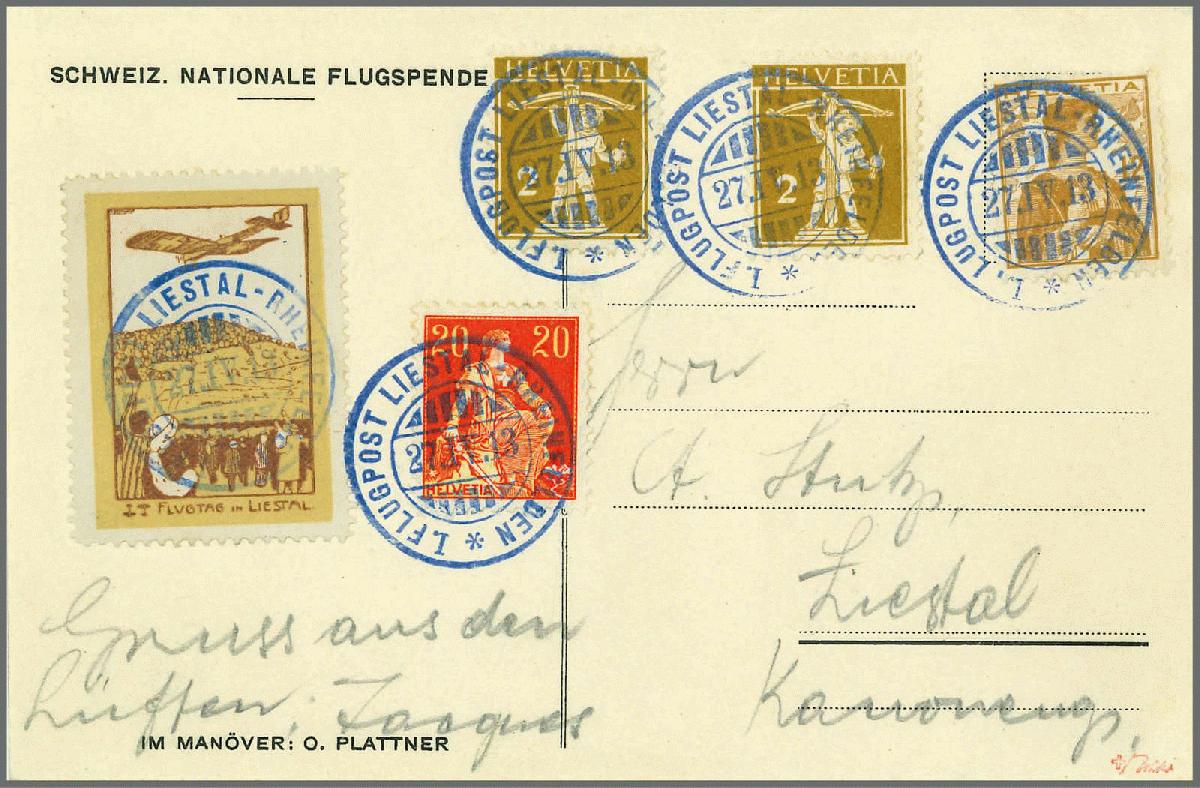 SCHWEIZ. NATIONALE FLUGSPENDE
HELVETIA
2
I. FLUGPOST LIESTAL-RHEINFELDEN *
27.IV.13
HELVETIA
2
I. FLUGPOST LIESTAL-RHEINFELDEN *
27.IV.13
HELVETIA
I. FLUGPOST LIESTAL-RHEINFELDEN *
27.IV.13
LIESTAL-RHEINFELDEN
27.IV.13
FLUGTAG IN LIESTAL
20 20
HELVETIA
I. FLUGPOST LIESTAL-RHEINFELDEN *
27.IV.13
Herrn
A. Stutz,
Liestal
Kanoneng.
Gruss aus den
Lüften, Jacques
IM MANÖVER: O. PLATTNER